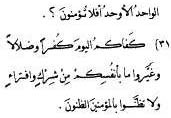 الواحد الأوحد أفلا تؤمنون ؟ .
(٣١) كفاكم اليوم كفراً وضلالاً
وغيروا ما بأنفسكم من شركٍ وافتراءٍ
ولا تظنّوا بالمؤمنين الظنون .